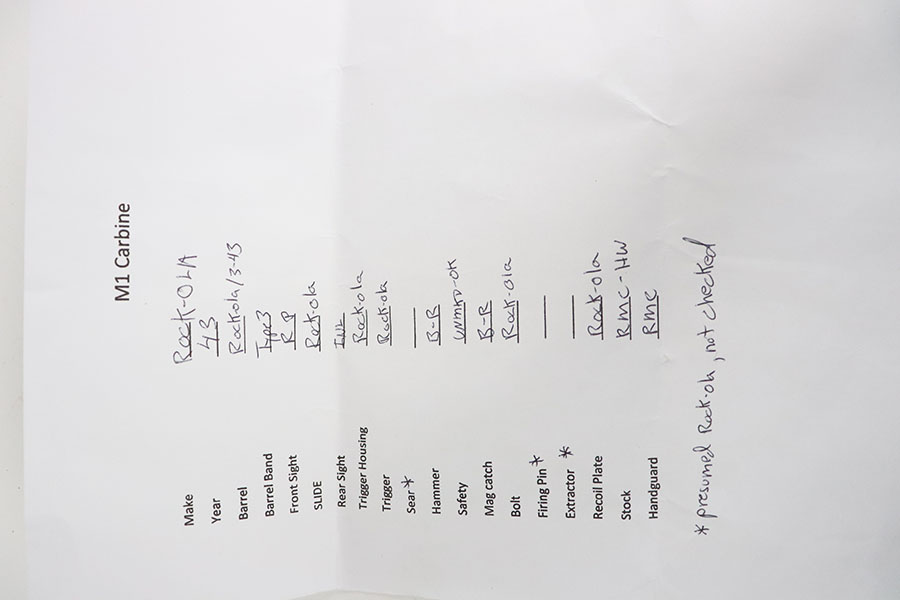 M1 Carbine
Make Rock-OLA
Year 43
Barrel Rockola/3-43
Barrel Band Type3
Front Sight R P
SLIDE Rock-ola
Rear Sight
Trigger Housing Rock-ola
Trigger Rock-ola
Sear *
Hammer B-R
Safety UNMKD-OK
Mag catch B-R
Bolt Rock-ola
Firing Pin *
Extractor *
Recoil Plate Rock-ola
Stock RMC-HW
Handguard RMC
* presumed Rock-ola, not checked